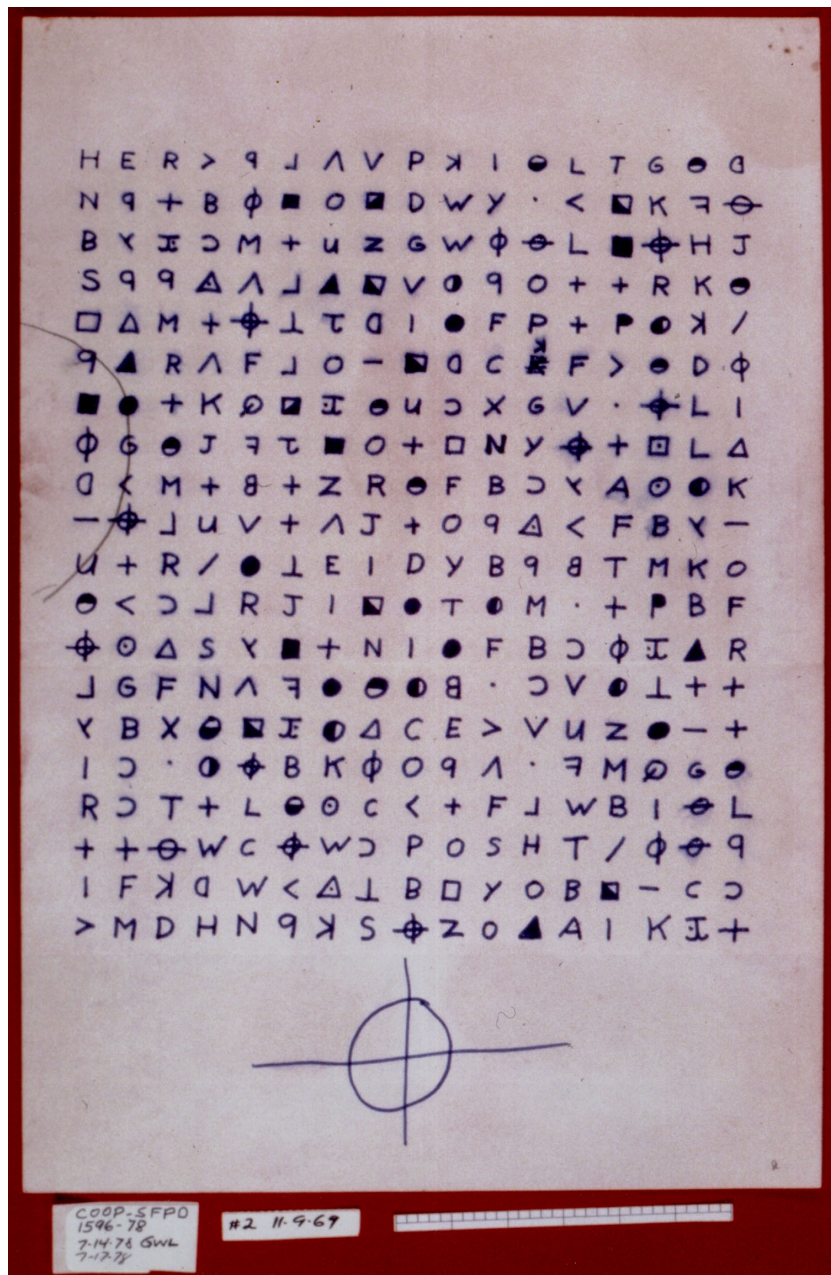 H E R > ꟼ ⅃ Λ V P ꓘ I ◒ L T G ◒ ᗡ
N ꟼ + B ϕ ■ O ◪ D W Y · < ◧ K ꟻ ⊖
B Y I Ɔ M + u Z G W ϕ ⊖ L ■ ⌖ H J
S ꟼ ꟼ ◬ Λ ⅃ ▲ ◧ V ◑ ꟼ O + + R K ◒
□ △ M + ⌖ ⊥ τ ᗡ I ● F P + P ◐ ꓘ /
ꟼ ▲ R Λ F ⅃ O – ◪ ᗡ C F > ◒ D ϕ
■ ● + K ∅ ◪ I ◒ u Ɔ X G V · ⌖ L I
ϕ G ◒ J ꟻ τ ■ O + □ N Y ⌖ + ⊡ L △
ᗡ < M + 8 + Z R ◒ F B Ɔ Y A ⊙ ◐ K
– ⌖ ⅃ u V + Λ J + O ꟼ ◬ < F B Y –
u + R / ● ⊥ E I D Y B ꟼ 8 T M K O
◒ < Ɔ ⅃ R J I ◧ ● T ◐ M · + P B F
⌖ ⊙ △ S Y ■ + N I ● F B Ɔ ϕ I ▲ R
⅃ G F N Λ ꟻ ● ◒ ◐ 8 · Ɔ V ◐ ⊥ + +
Y B X ◒ ◧ I ◐ △ C E > V u Z ● – +
I Ɔ · ◑ ⌖ B K ϕ O ꟼ Λ · ꟻ M ∅ G ◒
R Ɔ T + L ◒ ⊙ C < + F ⅃ W B I ⊖ L
+ + ⊖ W C ⌖ W Ɔ P O S H T / ϕ ⊖ ꟼ
I F ꓘ ᗡ W < ◬ ⊥ B □ Y O B ◧ – C Ɔ
> M D H N ꟼ ꓘ S ⌖ Z O ▲ A I K I +
COOP-SFPD
1596-78
7-14-78 GWL
7-17-78
#2 11-9-69